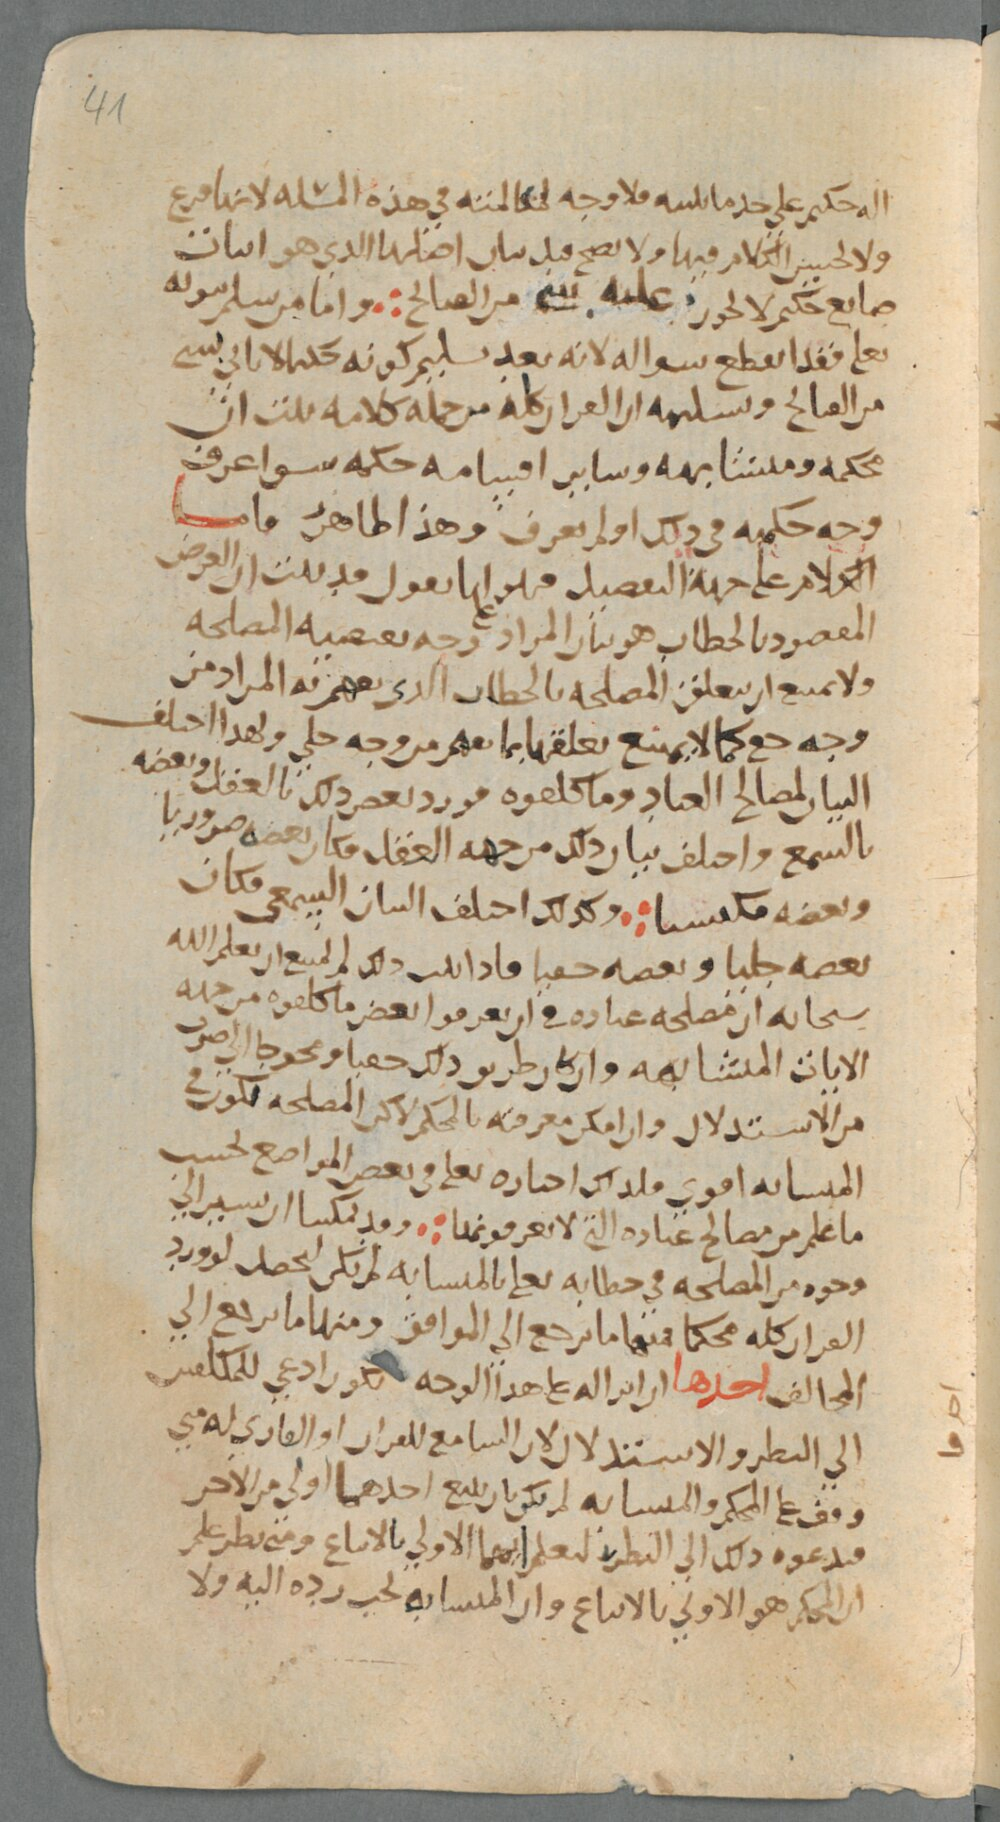 41
اله حكيم على حد ما نثبته فلا وجه لمكالمته في هذه المسئله لانها فرع
ولا يحسن الكلام فيها ولا يصح قبل بيان اصلها الذي هو اثبات
صانع حكيم لا يجوز عليه شي من القبائح ∴ واما من سلم قوله
تعالى فقد انقطع سواله لانه بعد تسليم كونه حكيما لا ياتي بشي
من القبائح وتسليمه ان القران كله من جملة كلامه يثبت ان
محكمه ومتشابهه وساير اقسامه حكمه سوا عرف
وجه حكمته في ذلك او لم يعرف وهذا ظاهر واما
الكلام على جهة التفصيل فهو انا نقول قد ثبت ان الغرض
المقصود بالخطاب هو بيان المراد على وجه تقتضيه المصلحه
ولا يمتنع ان تتعلق المصلحه بالخطاب الذي يفهم به المراد من
وجه خفي كما لا يمتنع تعلقها بما يفهم من وجه جلي ولهذا اختلف
البيان لمصالح العباد وما كلفوه فورد بعض ذلك بالعقل وبعضه
بالسمع واختلف بيان ذلك من جهه العقل فكان بعضه ضروريا
وبعضه مكتسبا ∴ وكذلك اختلف البيان السمعي فكان
بعضه جليا وبعضه خفيا فاذا ثبت ذلك لم يمتنع ان يعلم الله
سبحانه ان مصلحه عباده في ان يعرفوا بعض ما كلفوه من جهه
الايات المتشابهه وان كان طريق ذلك خفيا ومحوجا الى ضرب
من الاستدلال وان امكن معرفته بالمحكم لاكن المصلحه تكون في
المتشابه اقوى فلذلك اختاره تعالى في بعض المواضع بحسب
ما علم من مصالح عباده التي لا يعرفونها ∴ وقد يمكننا ان نشير الى
وجوه من المصلحه في خطابه تعالى بالمتشابه لم تكن لتحصل لو ورد
القران كله محكما فمنها ما يرجع الى الموافق ومنها ما يرجع الى
المخالف احدها ان انزاله على هذا الوجه يكون ادعى للمكلفين
الى النظر والاستدلال لان السامع للقران او القاري له متى
وقف على المحكم والمتشابه لم يكن بان يتبع احدهما اولى من الاخر
فيدعوه ذلك الى النظر ليعلم ايهما الاولى بالاتباع ومتى نظر علم
ان المحكم هو الاولى بالاتباع وان المتشابه يجب رده اليه ولا